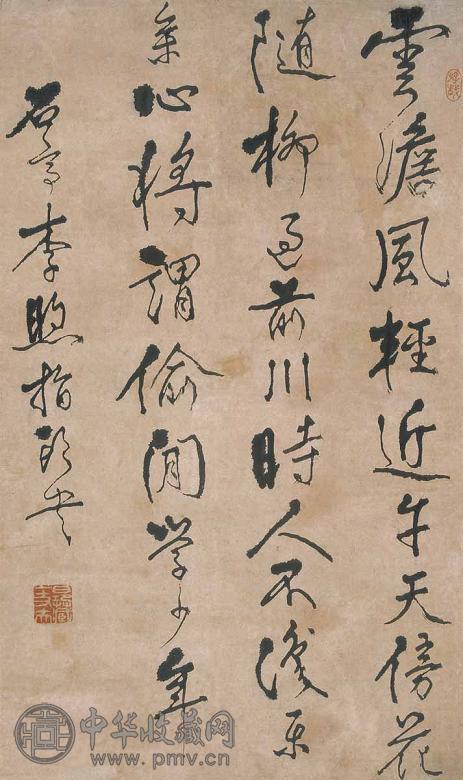 雲澹風輕近午天傍花
隨柳過前川時人不識
心將謂偷閒學少年
石亭李煦指頭書
中华收藏网
www.pmv.cn